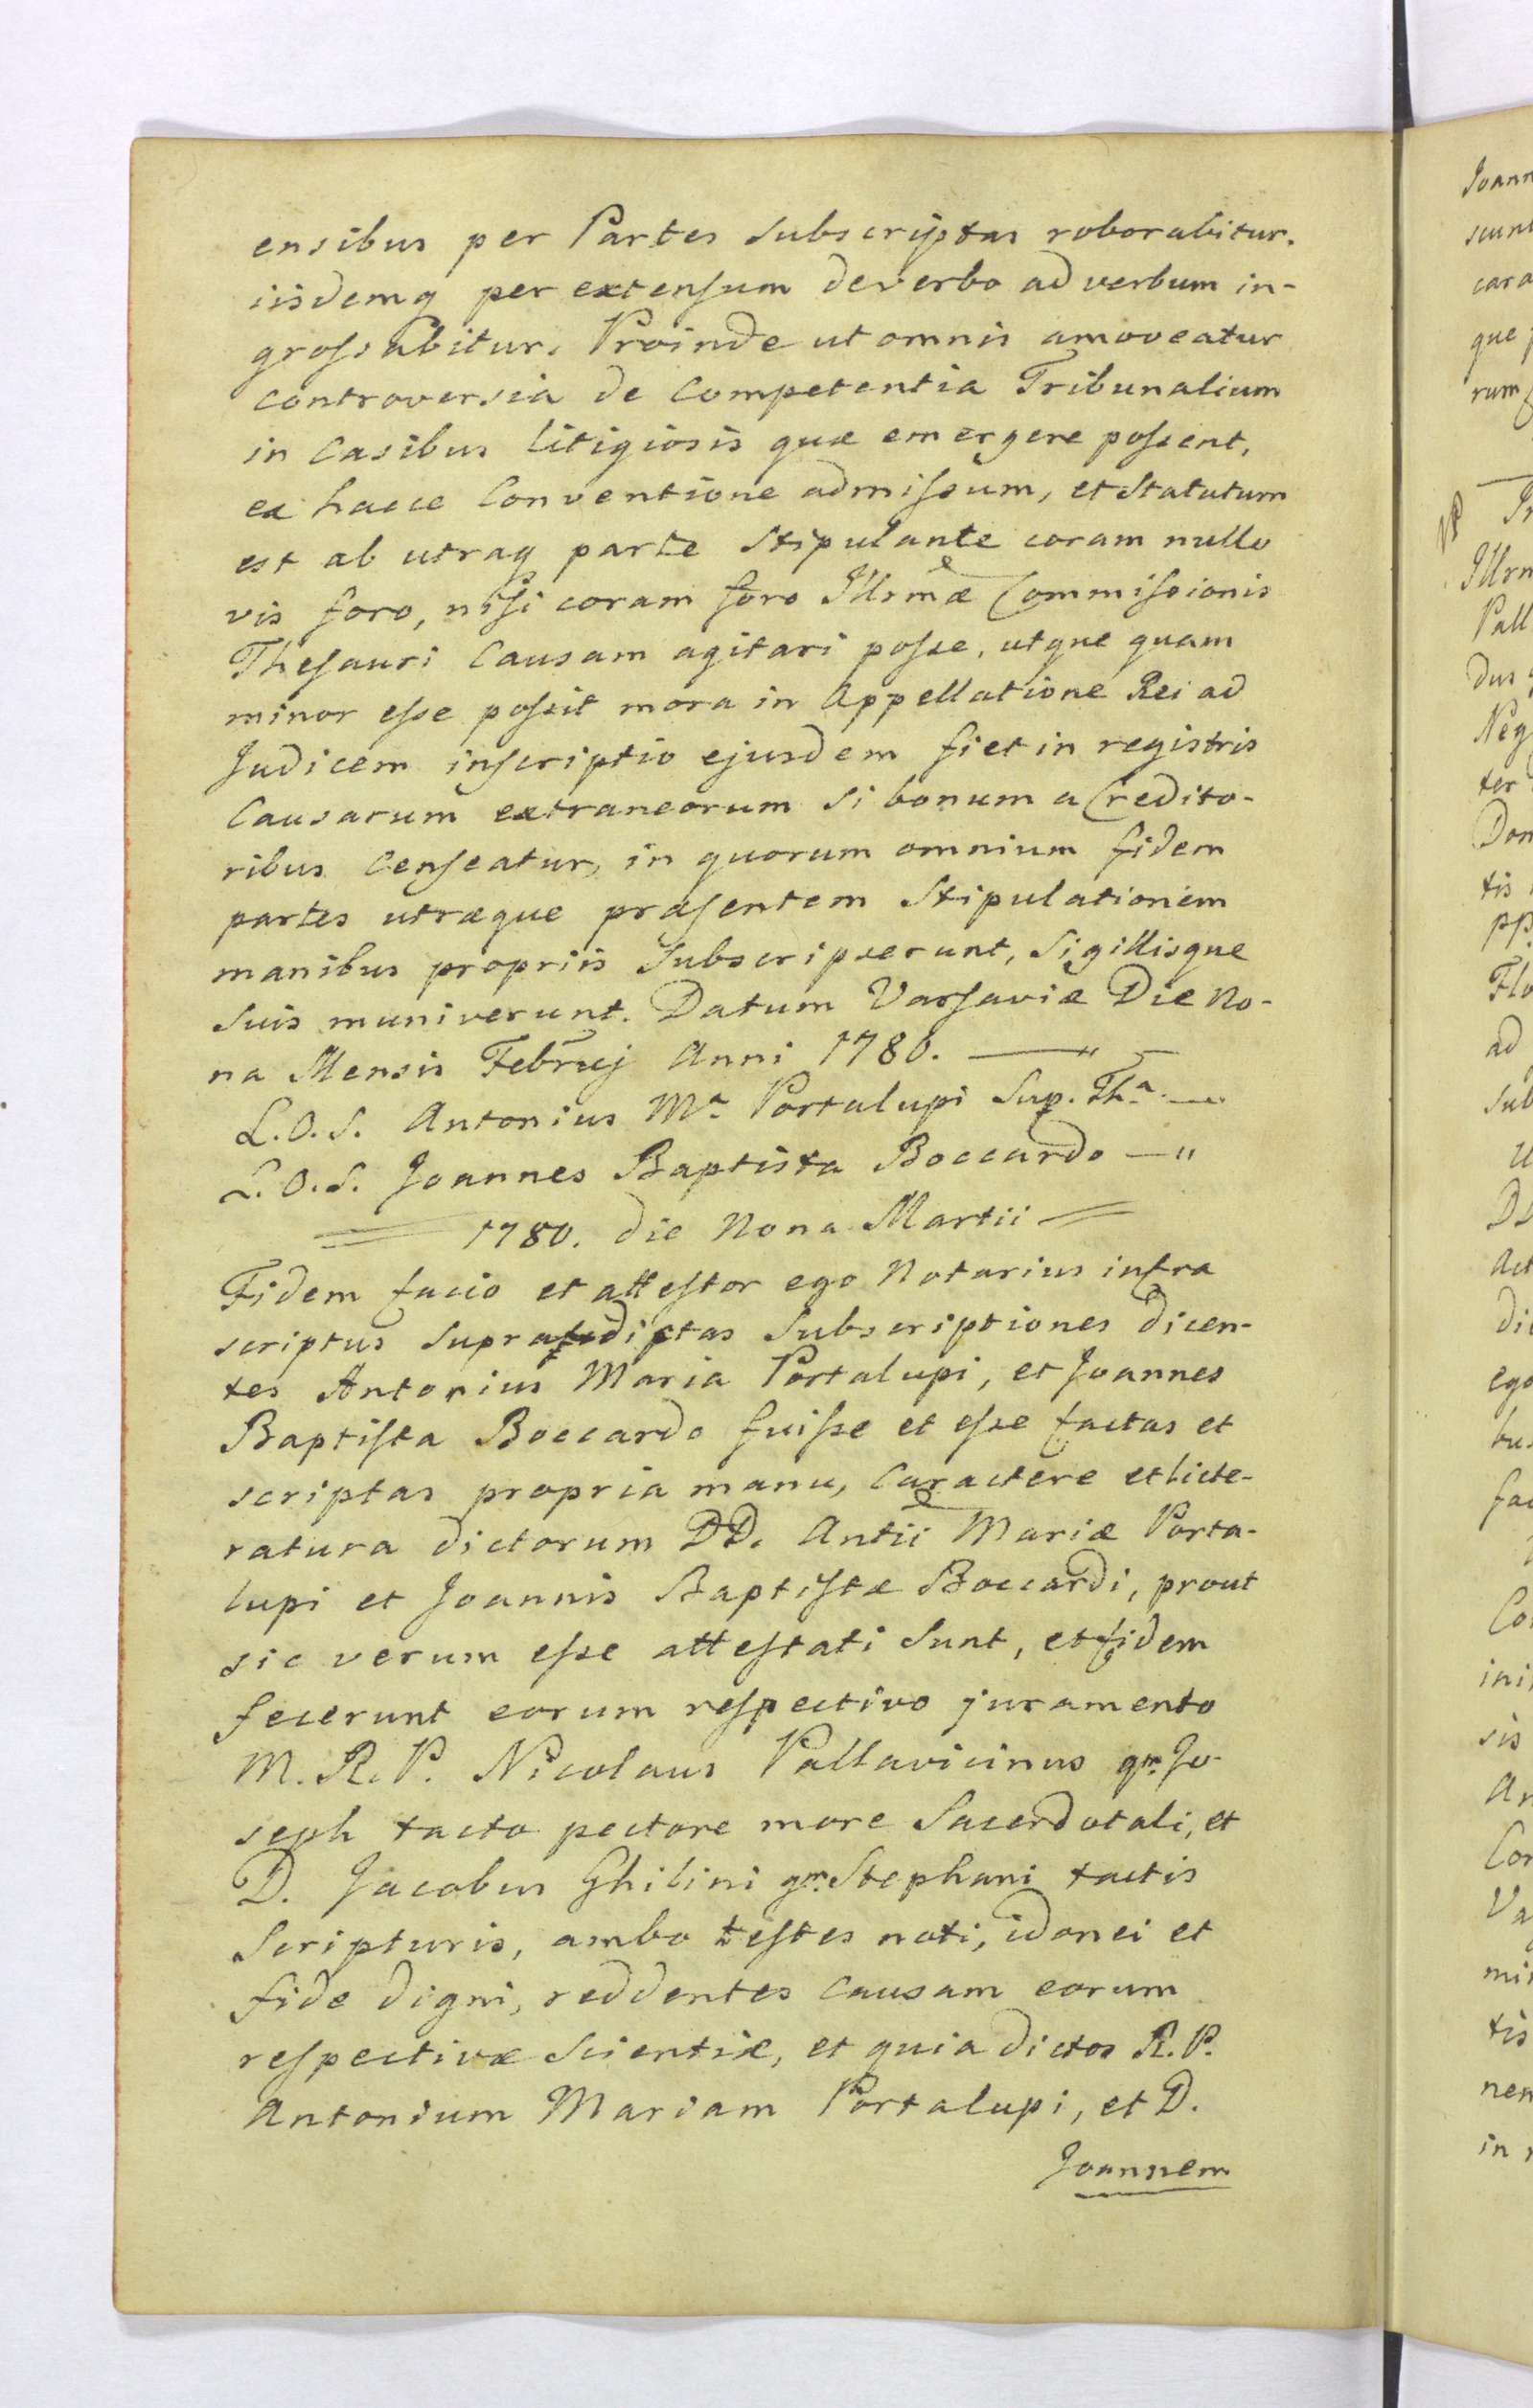 ensibus per Partes Subscriptas roborabitur.
iisdemq per extensum deverbo ad verbum in-
grossabitur. Proinde ut omnis amoveatur
controversia de Competentia Tribunalium
in Casibus litigiosis quæ emergere possent,
ex hacce Conventione admissum, et Statutum
est ab utraq parte Stipulante coram nullo
vis foro, nisi coram foro Illsmæ Commissionis
Thesauri Causam agitari posse, utque quam
minor esse possit mora in Appellatione Rei ad
Judicem inscriptio ejusdem fiet in registris
Causarum extraneorum Si bonum a Credito-
ribus Censeatur, in quorum omnium fidem
partes utræque præsentem Stipulationem
manibus propriis Subscripserunt, Sigillisque
Suis muniverunt. Datum Varsaviæ Die No-
na Mensis Februj Anni 1780.
L.O.S. Antonius Mª Portalupi Sup. Thª
L.O.S. Joannes Baptista Boccardo
1780. Die Nona Martii
Fidem facio et attestor ego Notarius infra
scriptus Supra dictas Subscriptiones dicen-
tes Antonius Maria Portalupi, et Joannes
Baptista Boccardo fuisse et esse factas et
scriptas propria manu, Caractere et licte-
ratura dictorum DD. Antii Mariæ Porta-
lupi et Joannis Baptistæ Boccardi, prout
sic verum esse attestati Sunt, et fidem
fecerunt eorum respectivo juramento
M. R. P. Nicolaus Pallavicinus qm. Jo-
seph tacto pectore more Sacerdotali, et
D. Jacobus Ghilini qm. Stephani tactis
Scripturis, ambo testes noti, idonei et
fide digni, reddentes Causam eorum
respectivæ Scientiæ, et quia dictos R. P.
Antonium Mariam Portalupi, et D.
Joannem